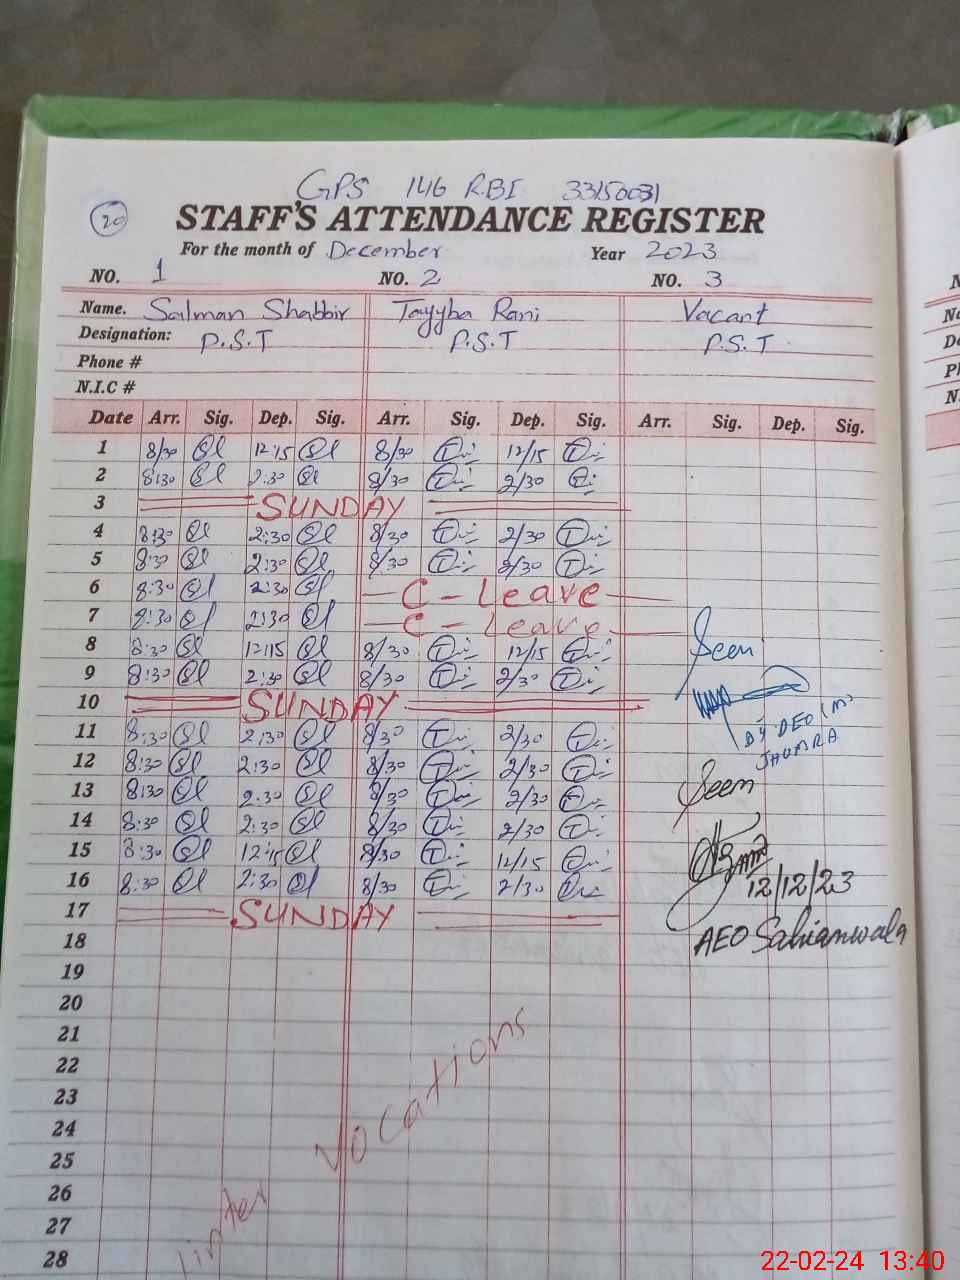 GPS 146 R.B I 33150031
20
STAFF'S ATTENDANCE REGISTER
For the month of December Year 2023
NO. 1 NO. 2 NO. 3
Name. Salman Shabbir Tayyba Rani Vacant
Designation: P.S.T P.S.T P.S.T
Phone #
N.I.C #
Date Arr. Sig. Dep. Sig. Arr. Sig. Dep. Sig. Arr. Sig. Dep. Sig.
1 8/30 12:15 8/30 12/15
2 8:30 2:30 8/30 2/30
3 SUNDAY
4 8:30 2:30 8/30 2/30
5 8:30 2:30 8/30 2/30
6 8:30 2:30 C - Leave
7 8:30 2:30 C - Leave
8 8:30 12:15 8/30 12/15
9 8:30 2:30 8/30 2/30
10 SUNDAY
11 8:30 2:30 8/30 2/30
12 8:30 2:30 8/30 2/30
13 8:30 2:30 8/30 2/30
14 8:30 2:30 8/30 2/30
15 8:30 12:15 8/30 12/15
16 8:30 2:30 8/30 2/30
17 SUNDAY
18
19
20
21
22
23
24
25
26
27
28
Seen
Dy DEO (M)
JHUMRA
Seen
12/12/23
AEO Sahianwala
Vocations
22-02-24 13:40